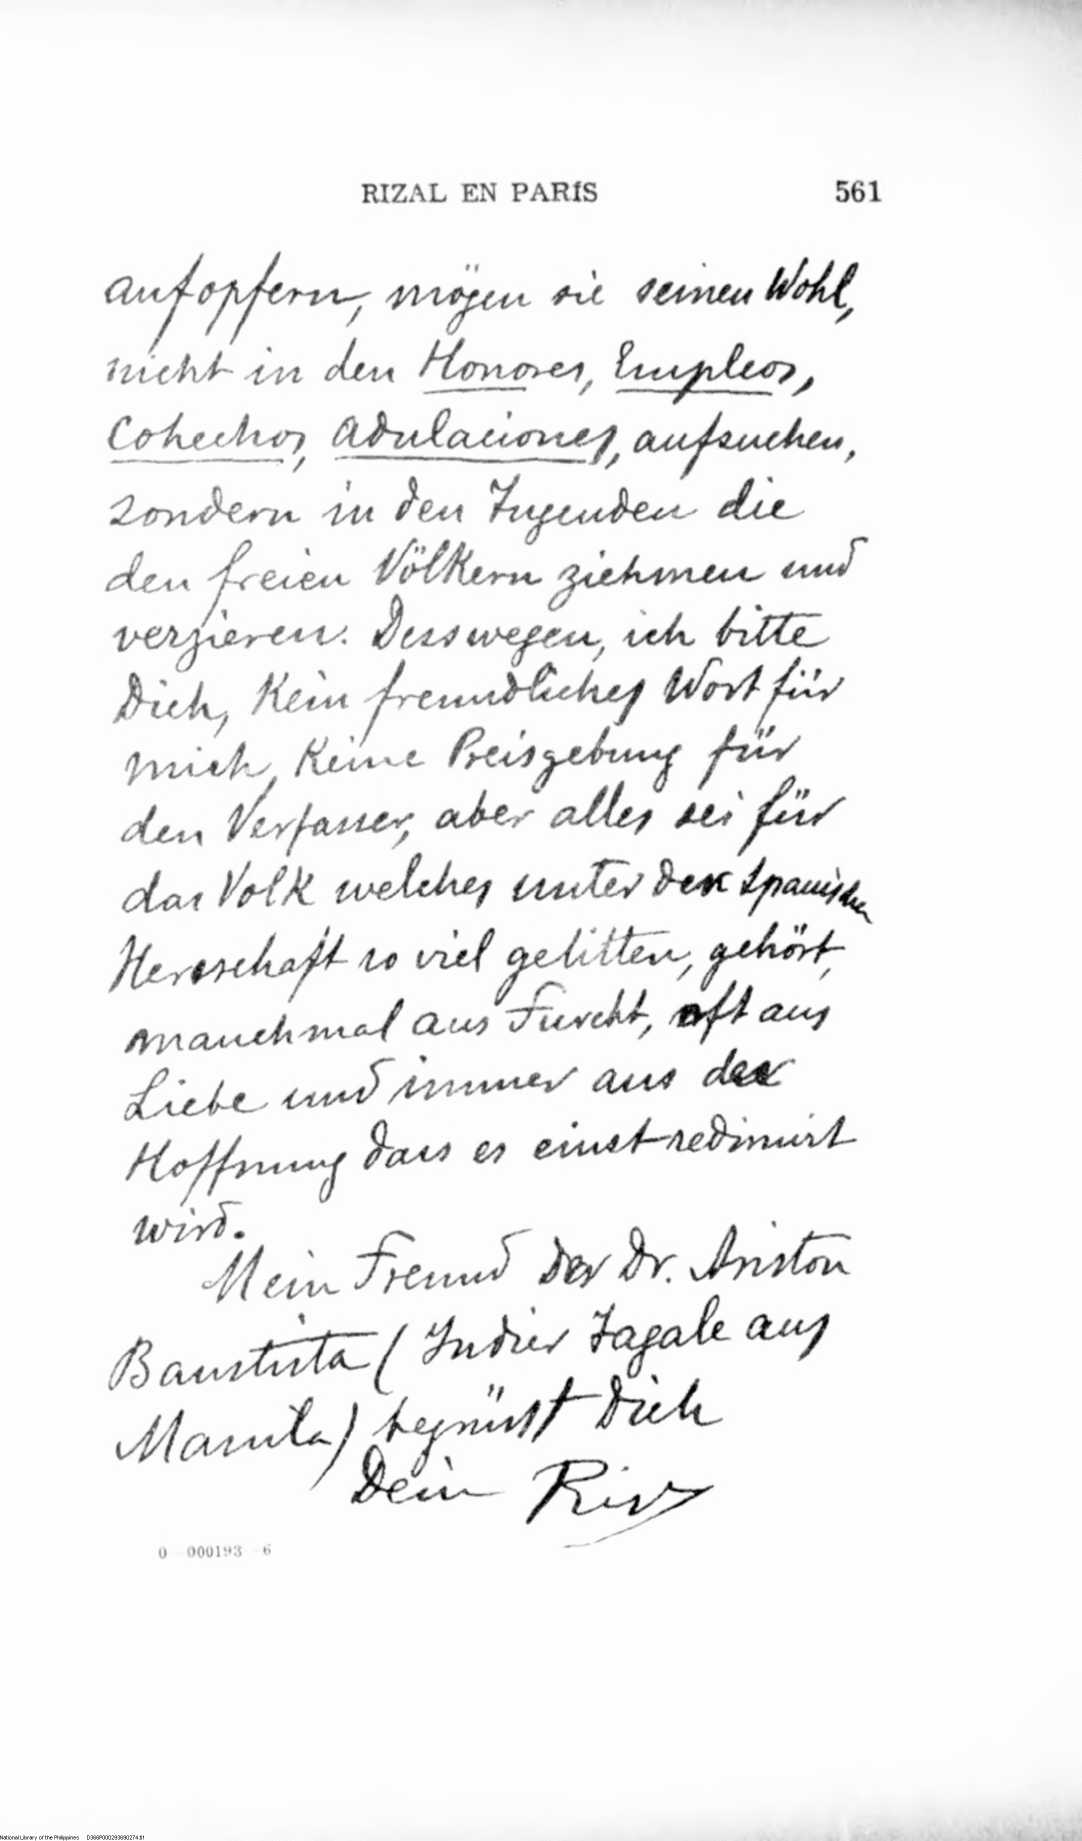 RIZAL EN PARÍS 561
aufopfern, mögen sie seinen Wohl,
nicht in den Honores, Empleos,
Cohechos, Adulaciones, aufsuchen,
sondern in den Tugenden die
den freien Völkern ziehmen und
verzieren. Desswegen, ich bitte
Dich, Kein freundliches Wort für
mich, Keine Preisgebung für
den Verfasser, aber alles sei für
das Volk welches unter der Spanischen
Herrschaft so viel gelitten, gehört,
manchmal aus Furcht, oft aus
Liebe und immer aus der
Hoffnung dass es einst redimirt
wird.
Mein Freund der Dr. Ariston
Baustista (Indier Tagale aus
Manila) begrüsst Dich
Dein Riz
0--000193--6
National Library of the Philippines D366P000293690274.tif